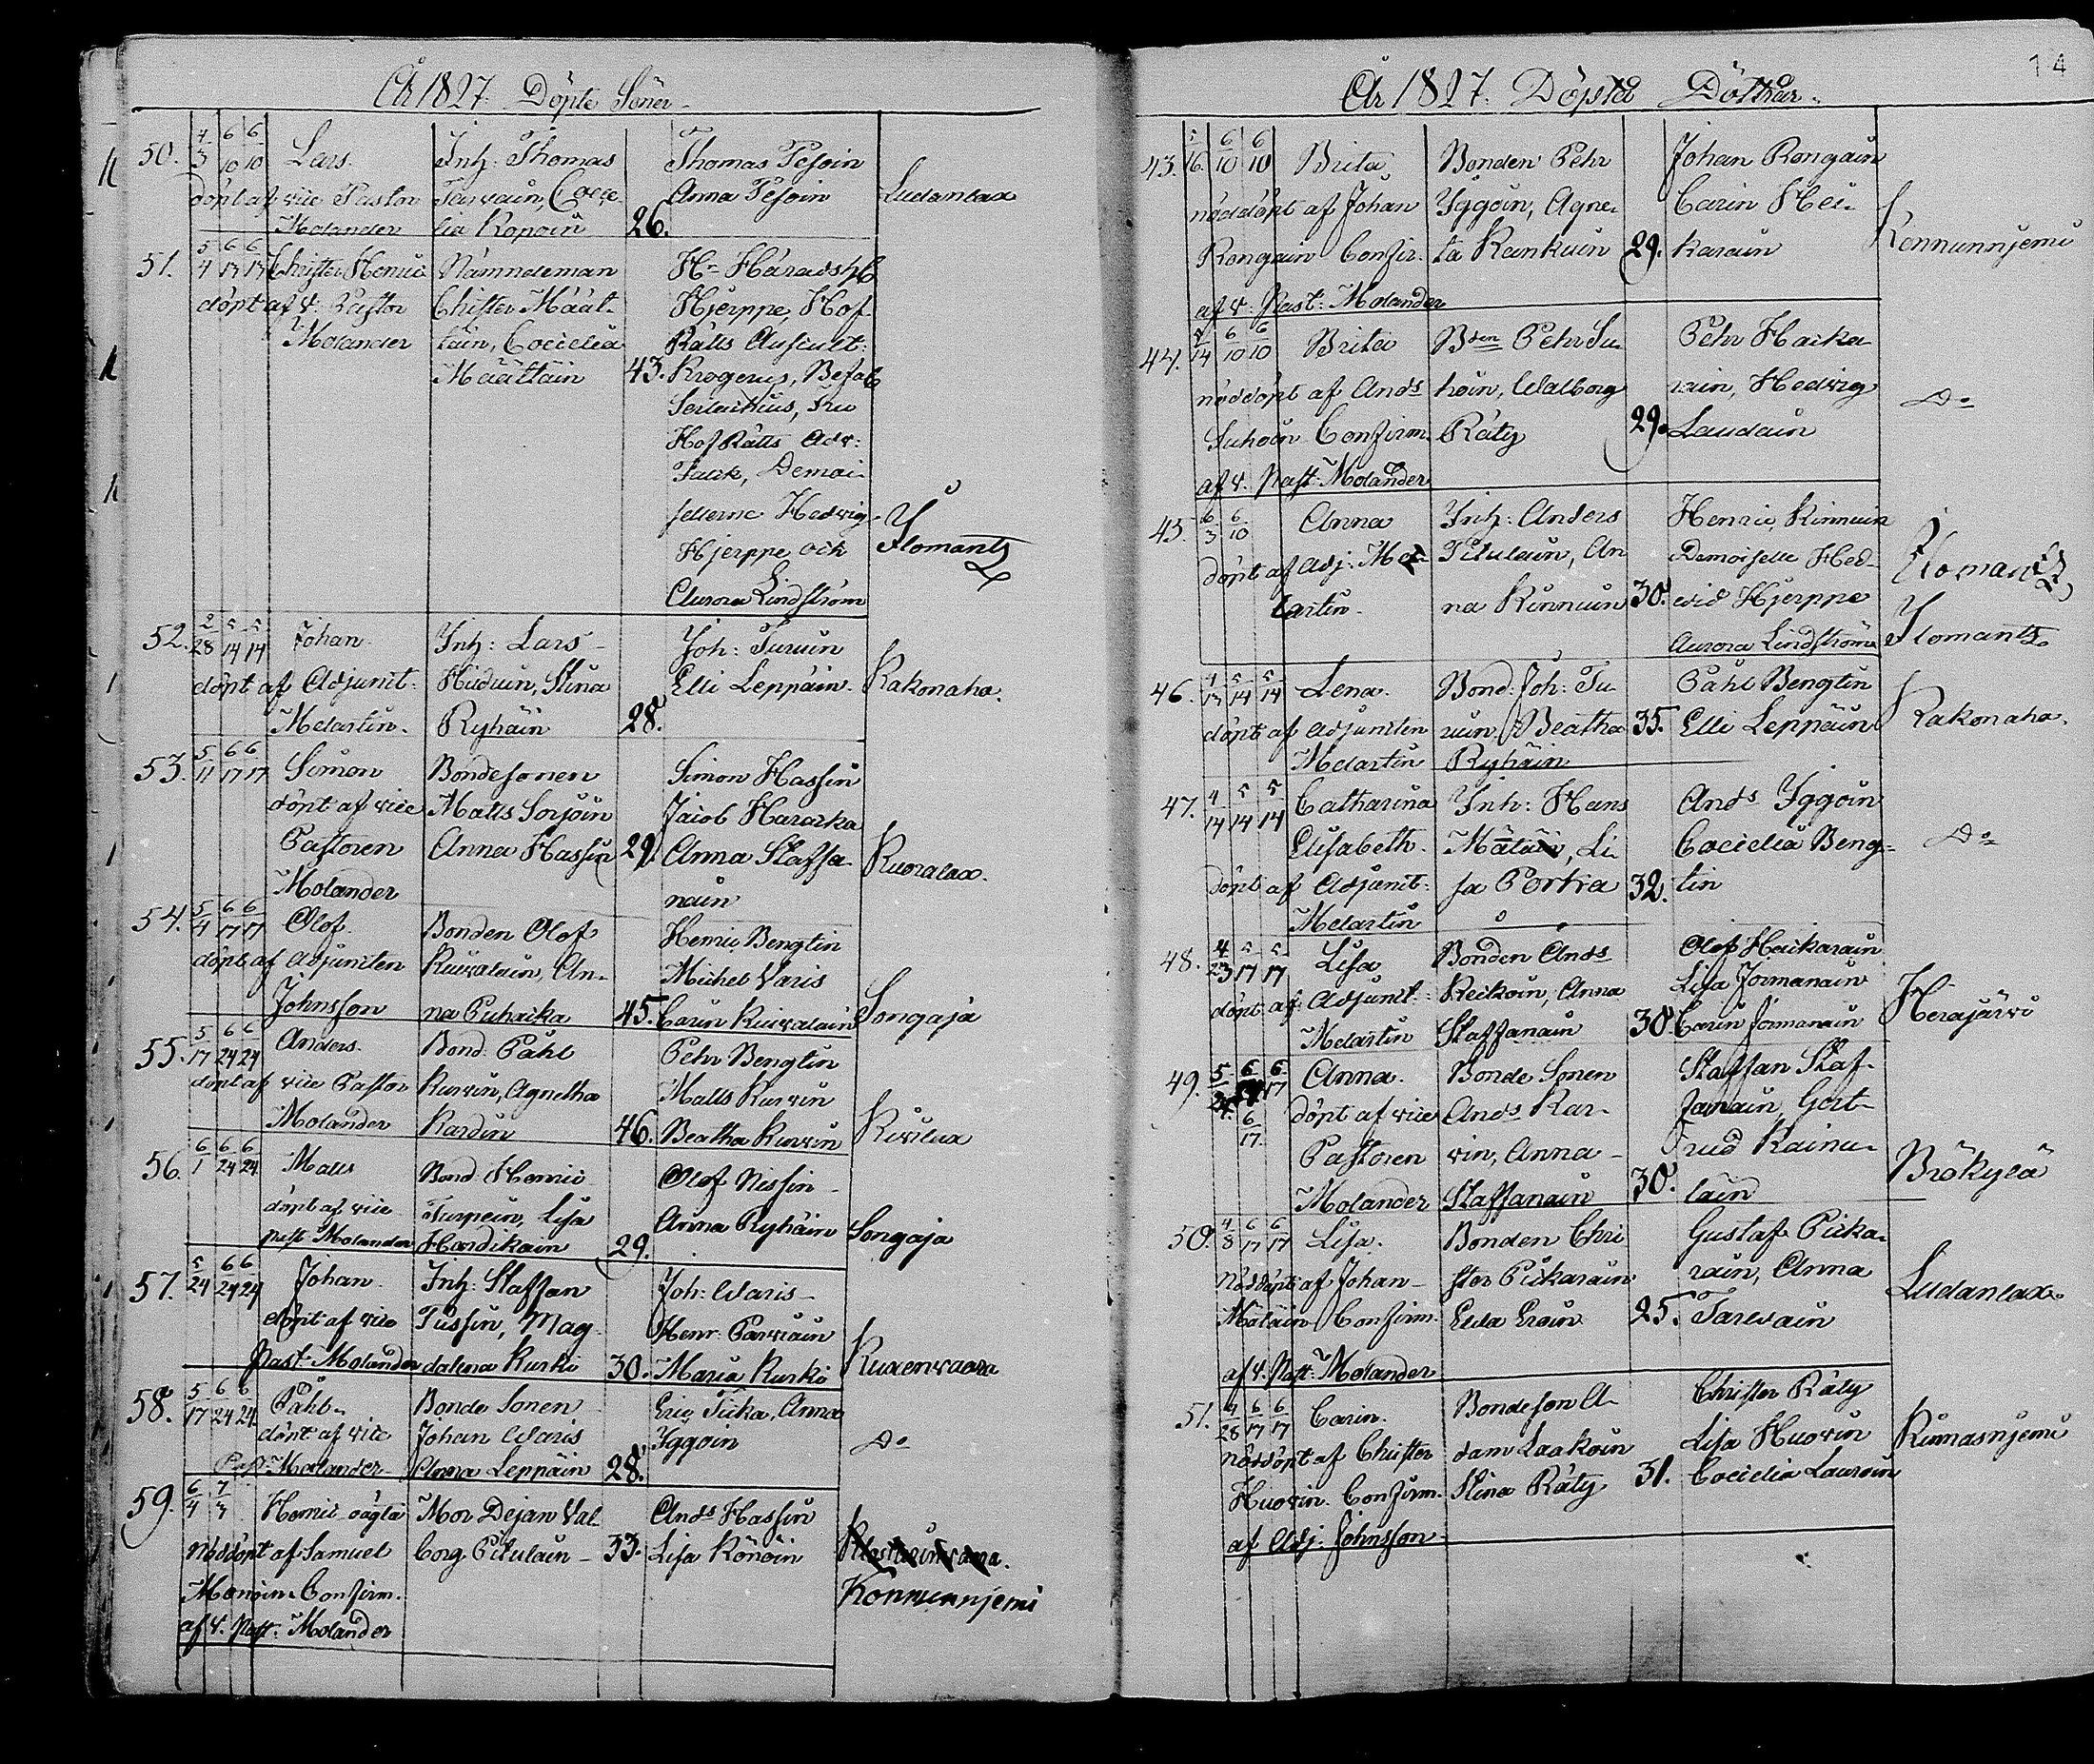 År 1827. Döpte Söner
50. 4/3 6/10 6/10 Lars. Inh: Thomas Thomas Pesoin
döpt af vice Pastor Tarvain, Coeci- Anna Pesoin Ludanlax
Molander lia Kopoin 26.
51. 5/4 6/17 6/17 Christer Henric Nämndeman Hr Häradsh
döpt af v. Pastor Christer Määt- Hjerppe, Hof-
Molander täin, Coecelia Rätts Auscult:
Määttäin 43. Krogerus, Befal
Serlachius, Fru
Hof Rätts Adv:
Demoi-
sellerne Hedvig
Hjerppe och Ilomants
Aurora Lindström
52. 2/28 5/14 5/14 Johan. Inh: Lars Joh: Turuin
döpt af Adjunct: Hiduin, Stina Elli Leppäin. Kakonaha.
Melartin. Ryhäin 28.
53. 5/11 6/17 6/17 Simon Bondesonen Simon Hassin
döpt af vice Matts Sorjoin Jacob Hararka
Pastoren Anna Hassin 29. Anna Staffa- Kuoralax.
Molander nain
54. 5/4 6/17 6/17 Olof. Bonden Olof Henric Bengtin
döpt af Adjuncten Kuivalain, An- Michel Varis
Johnsson na Puhakka 45. Carin Kuivalain Songaja
55. 5/17 6/24 6/24 Anders. Bond: Påhl Pehr Bengtin
döpt af vice Pastor Kurvin, Agnetha Matts Kurvin
Molander Kardin 46. Beatha Kurvin Kivilax
56. 6/1 6/24 6/24 Matts Bond: Henric Olof Nissin
döpt af vice Turpein, Lisa Anna Ryhäin Songaja
past Molander Hardikain 29.
57. 5/24 6/24 6/24 Johan. Inh: Staffan Joh: Waris
döpt af vice Pussin, Mag- Henr: Parviain
Past: Molander dalena Kurki 30. Maria Kurki Kuxenvaara
58. 5/17 6/24 6/24 Påhl. Bonde Sonen Eric Tiika, Anna
döpt af vice Johan Waris Yggoin Do
Past: Molander Anna Leppäin 28.
59. 6/4 7/3 Henric oägta Mor Dejan Val- Ands Hassin
Nöddöpt af Samuel borg Pitulain 33. Lisa Könöin
Confirm. Konnunnjemi
af v. Past: Molander
14
År 1827. Döpta Döttrar.
43. 5/16 6/10 6/10 Brita Bonden Pehr Johan Rongain
nöddöpt af Johan Yggöin, Agne- Carin Hei-
Rongain Confir. ta Kankuin 29. karain Kennunnjemi
af v. Past: Molander
44. 5/14 6/10 6/10 Brita Bden Pehr Su- Pehr Haika-
nöddöpt af Ands hoin, Walborg rain, Hedvig Do
Suhoin Confirm. Räty 29. Laudain
af v. Past: Molander
45. 6/3 6/10 Anna Inh: Anders Henric Kinnuin
döpt af Adj: Me- Pitulain, An- Demoiselle Hed- Ilomants
lartin. na Kinnuin 30. vid Hjerppe
Aurora Lindström Ilomants.
46. 4/13 5/14 5/14 Lena. Bond: Joh: Tu- Påhl Bengtin
döpt af Adjuncten ruin, Beatha 35. Elli Leppäin Kakonaha.
Melartin Ryhäin
47. 4/14 5/14 5/14 Catharina Inh: Hans Ands Yggoin
Elisabeth. Li- Coecelia Beng- Do
döpt af Adjunct: sa Portra 32. tin
Melartin
48. 4/23 5/17 5/17 Lisa Bonden Ands Olof Haikarain
döpt af Adjunct: Keikoin, Anna Lisa Jormanain
Melartin Staffanain 38. Carin Jormanain Herajärvi
49. 5/24 6/17 6/17 Anna. Bonde Sonen Staffan Staf-
döpt af vice Ands Kar- fanain, Gert-
Pastoren vin, Anna rud Kainu-
Molander Staffanain 30. lain Brökylä
50. 4/8 6/17 6/17 Lisa. Bonden Chri- Gustaf Pika-
Nöddöpt af Johan ster Pikarain rain, Anna
Mätäin Confirm. Elda Eroin 25. Tarvain Ludanlax.
af v. Past: Molander
51. 4/28 6/17 6/17 Carin. Bondeson A- Christer Räty
nöddöpt af Christer dam Laakoin Lisa Huovin Kinnasnjemi
Huovin. Confirm. Stina Räty 31. Coecelia Lauroin
af Adj: Johnsson